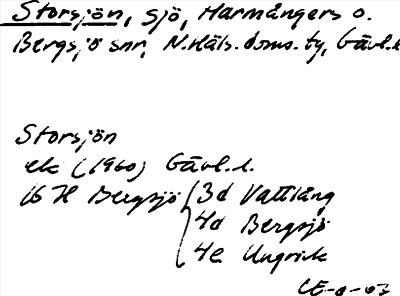 Storsjön, sjö, Harmångers o.
Bergsjö snr, N. Häls. doms. tg, Gävl. l.
Storsjön
ek (1960) Gävl. l.
16 H Bergsjö 3d Vattlång
4d Bergsjö
4e Ungvik